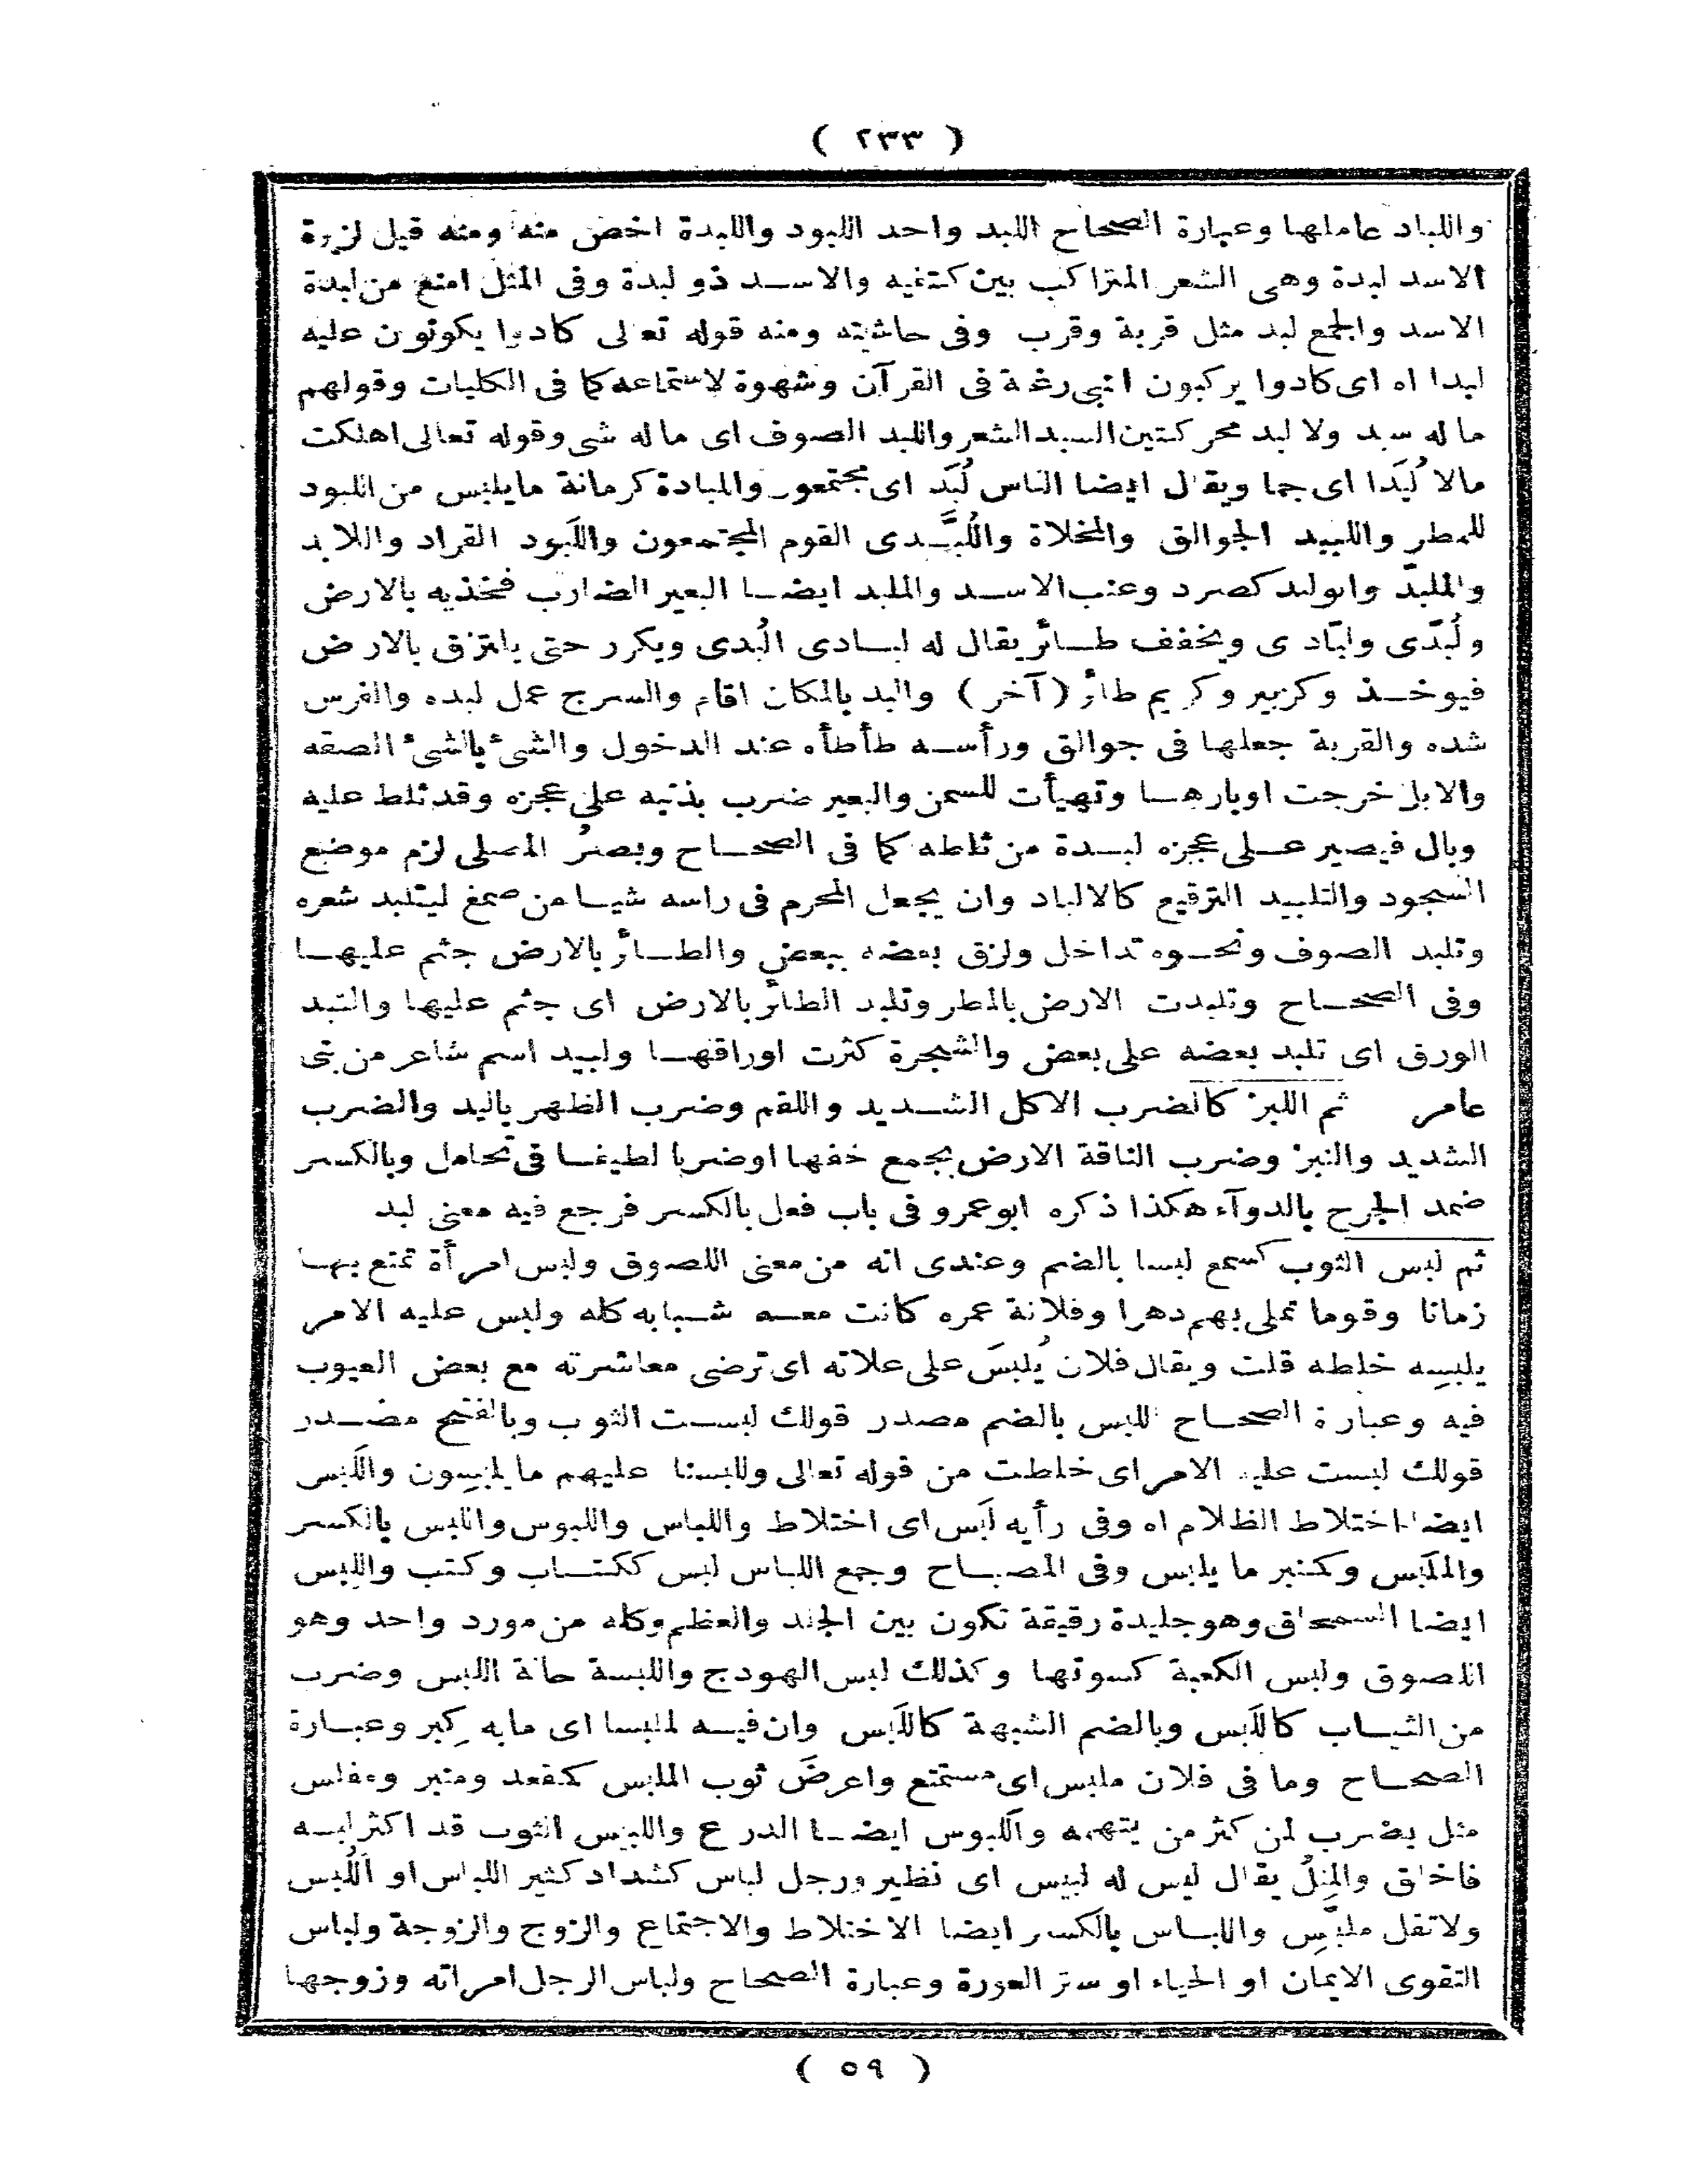 ( ٢٣٣ )
واللباد عاملها وعبارة الصحاح اللبد واحد اللبود واللبدة اخص منه ومنه قيل لزبرة
الاسد لبدة وهى الشعر المتراكب بين كتفيه والاسد ذو لبدة وفى المثل امنع من لبدة
الاسد والجمع لبد مثل قربة وقرب وفى حاشيته ومنه قوله تعالى كادوا يكونون عليه
لبدا اه اى كادوا يركبون النبى رغبة فى القرآن وشهوة لاستماعه كما فى الكليات وقولهم
ما له سبد ولا لبد محركتين السبد الشعر واللبد الصوف اى ما له شى وقوله تعالى اهلكت
مالا لُبَدا اى جما ويقال ايضا الناس لُبَد اى مجتمعون واللبادة كرمانة ما يلبس من اللبود
للمطر واللبيد الجوالق والمخلاة واللُبَّدى القوم المجتمعون واللَبود القراد واللابد
والملبّد وابولبد كصرد وعنب الاسد والملبد ايضا البعير الضارب فخذيه بالارض
ولُبّدى ولبّادى ويخفف طائر يقال له لبادى البُدى ويكرر حتى يلتزق بالارض
فيوخذ وكزبير وكريم طائر (آخر) والبد بالمكان اقام والسرج عمل لبده والفرس
شده والقربة جعلها فى جوالق ورأسه طأطأه عند الدخول والشئ بالشئ الصقه
والابل خرجت اوبارها وتهيأت للسمن والبعير ضرب بذنبه على عجزه وقد ثلط عليه
وبال فيصير على عجزه لبدة من ثلطه كما فى الصحاح وبصرُ المصلى لزم موضع
السجود والتلبيد الترقيع كالالباد وان يجعل المحرم فى راسه شيا من صمغ ليتلبد شعره
وتلبد الصوف ونحوه تداخل ولزق بعضه ببعض والطائر بالارض جثم عليها
وفى الصحاح وتلبدت الارض بالمطر وتلبد الطائر بالارض اى جثم عليها والتبد
الورق اى تلبد بعضه على بعض والشجرة كثرت اوراقها ولبيد اسم شاعر من بنى
عامر ثم اللبز كالضرب الاكل الشديد واللقم وضرب الظهر باليد والضرب
الشديد والنبز وضرب الناقة الارض بجمع خفها اوضربا لطيفا فى تحامل وبالكسر
ضمد الجرح بالدوآء هكذا ذكره ابوعمرو فى باب فعل بالكسر فرجع فيه معنى لبد
ثم لبس الثوب كسمع لبسا بالضم وعندى انه من معنى اللصوق ولبس امرأة تمتع بها
زمانا وقوما تملى بهم دهرا وفلانة عمره كانت معه شبابه كله ولبس عليه الامر
يلبسِه خلطه قلت ويقال فلان يُلبَس على علاته اى ترضى معاشرته مع بعض العيوب
فيه وعبارة الصحاح اللبس بالضم مصدر قولك لبست الثوب وبالفتح مصدر
قولك لبست عليه الامر اى خلطت من قوله تعالى وللبسنا عليهم ما يلبسِون واللَبس
ايضا اختلاط الظلام اه وفى رأيه لَبس اى اختلاط واللباس واللبوس واللبس بالكسر
والملَبس وكمنبر ما يلبس وفى المصباح وجمع اللباس لبس ككتاب وكتب واللبس
ايضا السمحاق وهو جليدة رقيقة تكون بين الجلد والعظم وكله من مورد واحد وهو
اللصوق ولبس الكعبة كسوتها وكذلك لبس الهودج واللبسة حالة اللبس وضرب
من الثياب كاللَبس وبالضم الشبهة كاللَبس وان فيه لملبسا اى ما به كِبر وعبارة
الصحاح وما فى فلان ملبس اى مستمتع واعرضَ ثوب الملبس كمقعد ومنبر ومفلس
مثل يضرب لمن كثر من يتهمه واللَبوس ايضا الدرع واللبيس الثوب قد اكثر لبسه
فاخلق والمِثلُ يقال ليس له لبيس اى نظير ورجل لباس كشداد كثير اللباس او اللُبس
ولا تقل ملبِّس واللباس بالكسر ايضا الاختلاط والاجتماع والزوج والزوجة ولباس
التقوى الايمان او الحياء او ستر العورة وعبارة الصحاح ولباس الرجل امراته وزوجها
( ٥٩ )